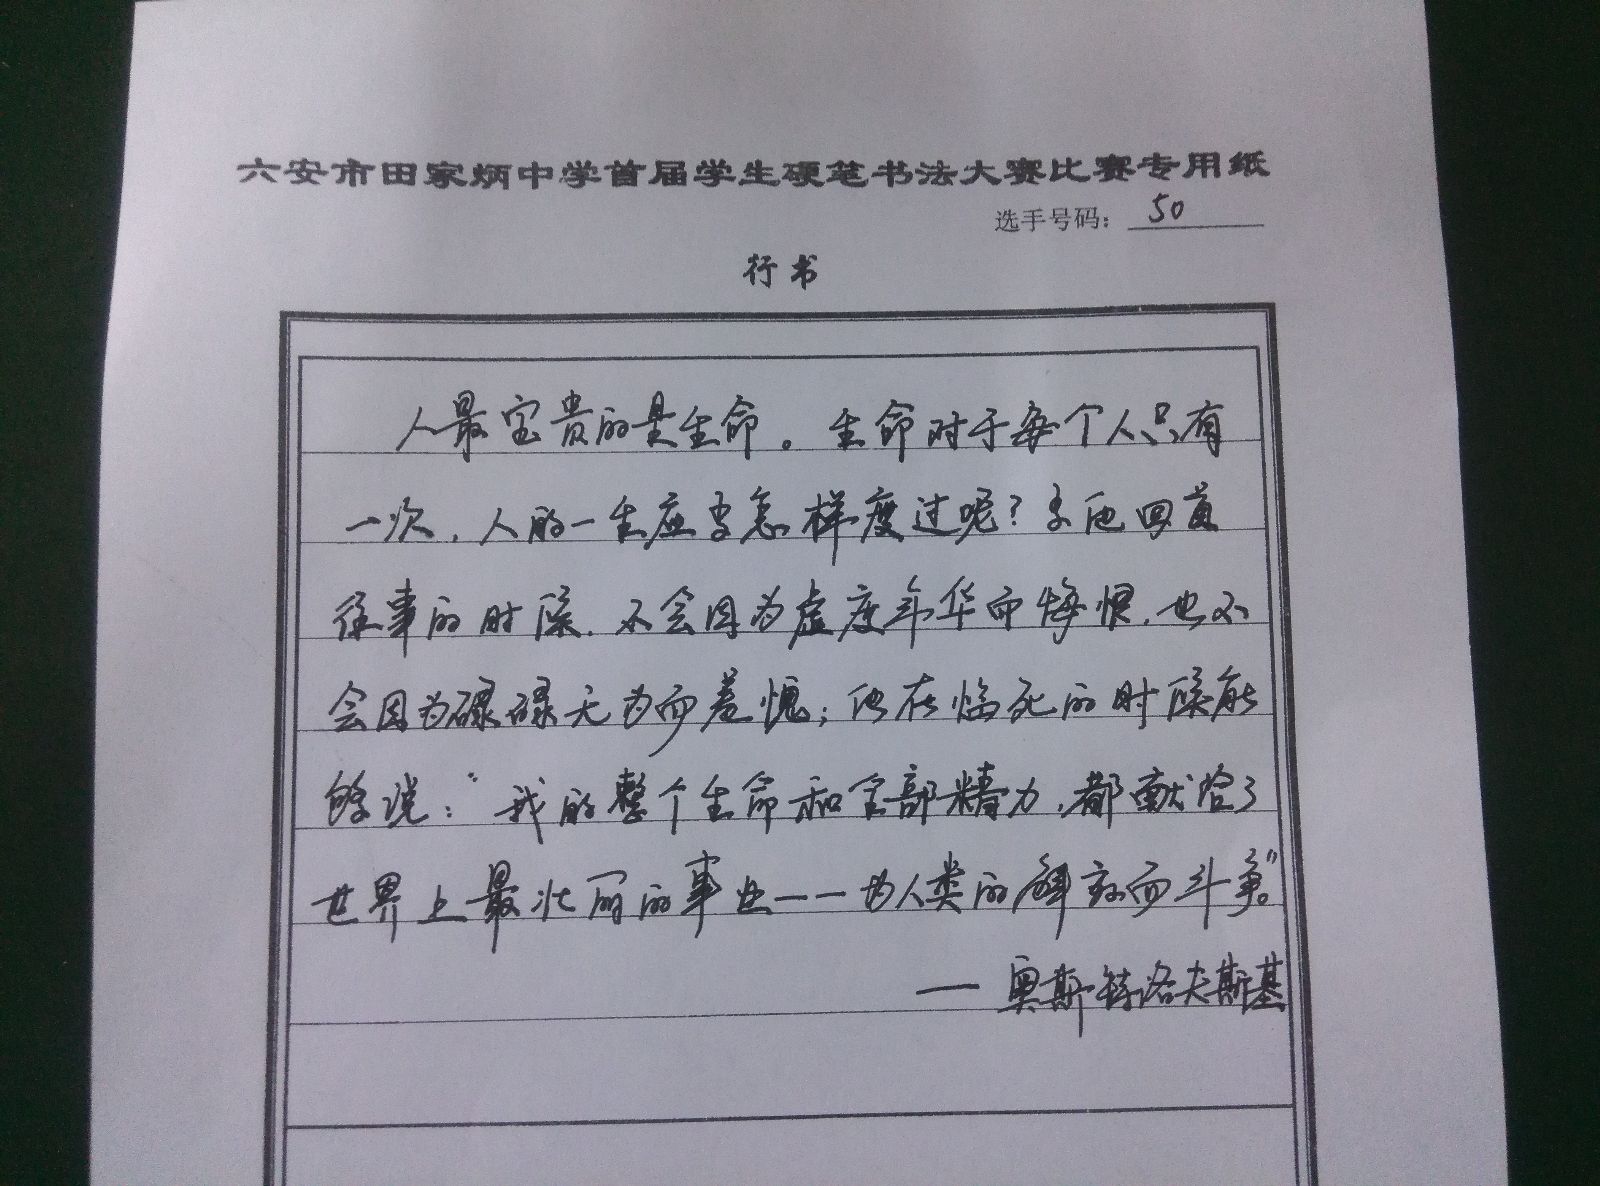 六安市田家炳中学首届学生硬笔书法大赛比赛专用纸
选手号码：50
行书
人最宝贵的是生命。生命对于每个人只有
一次，人的一生应当怎样度过呢？当他回首
往事的时候，不会因为虚度年华而悔恨，也不
会因为碌碌无为而羞愧；他在临死的时候能
够说：“我的整个生命和全部精力，都献给了
世界上最壮丽的事业——为人类的解放而斗争。”
——奥斯特洛夫斯基